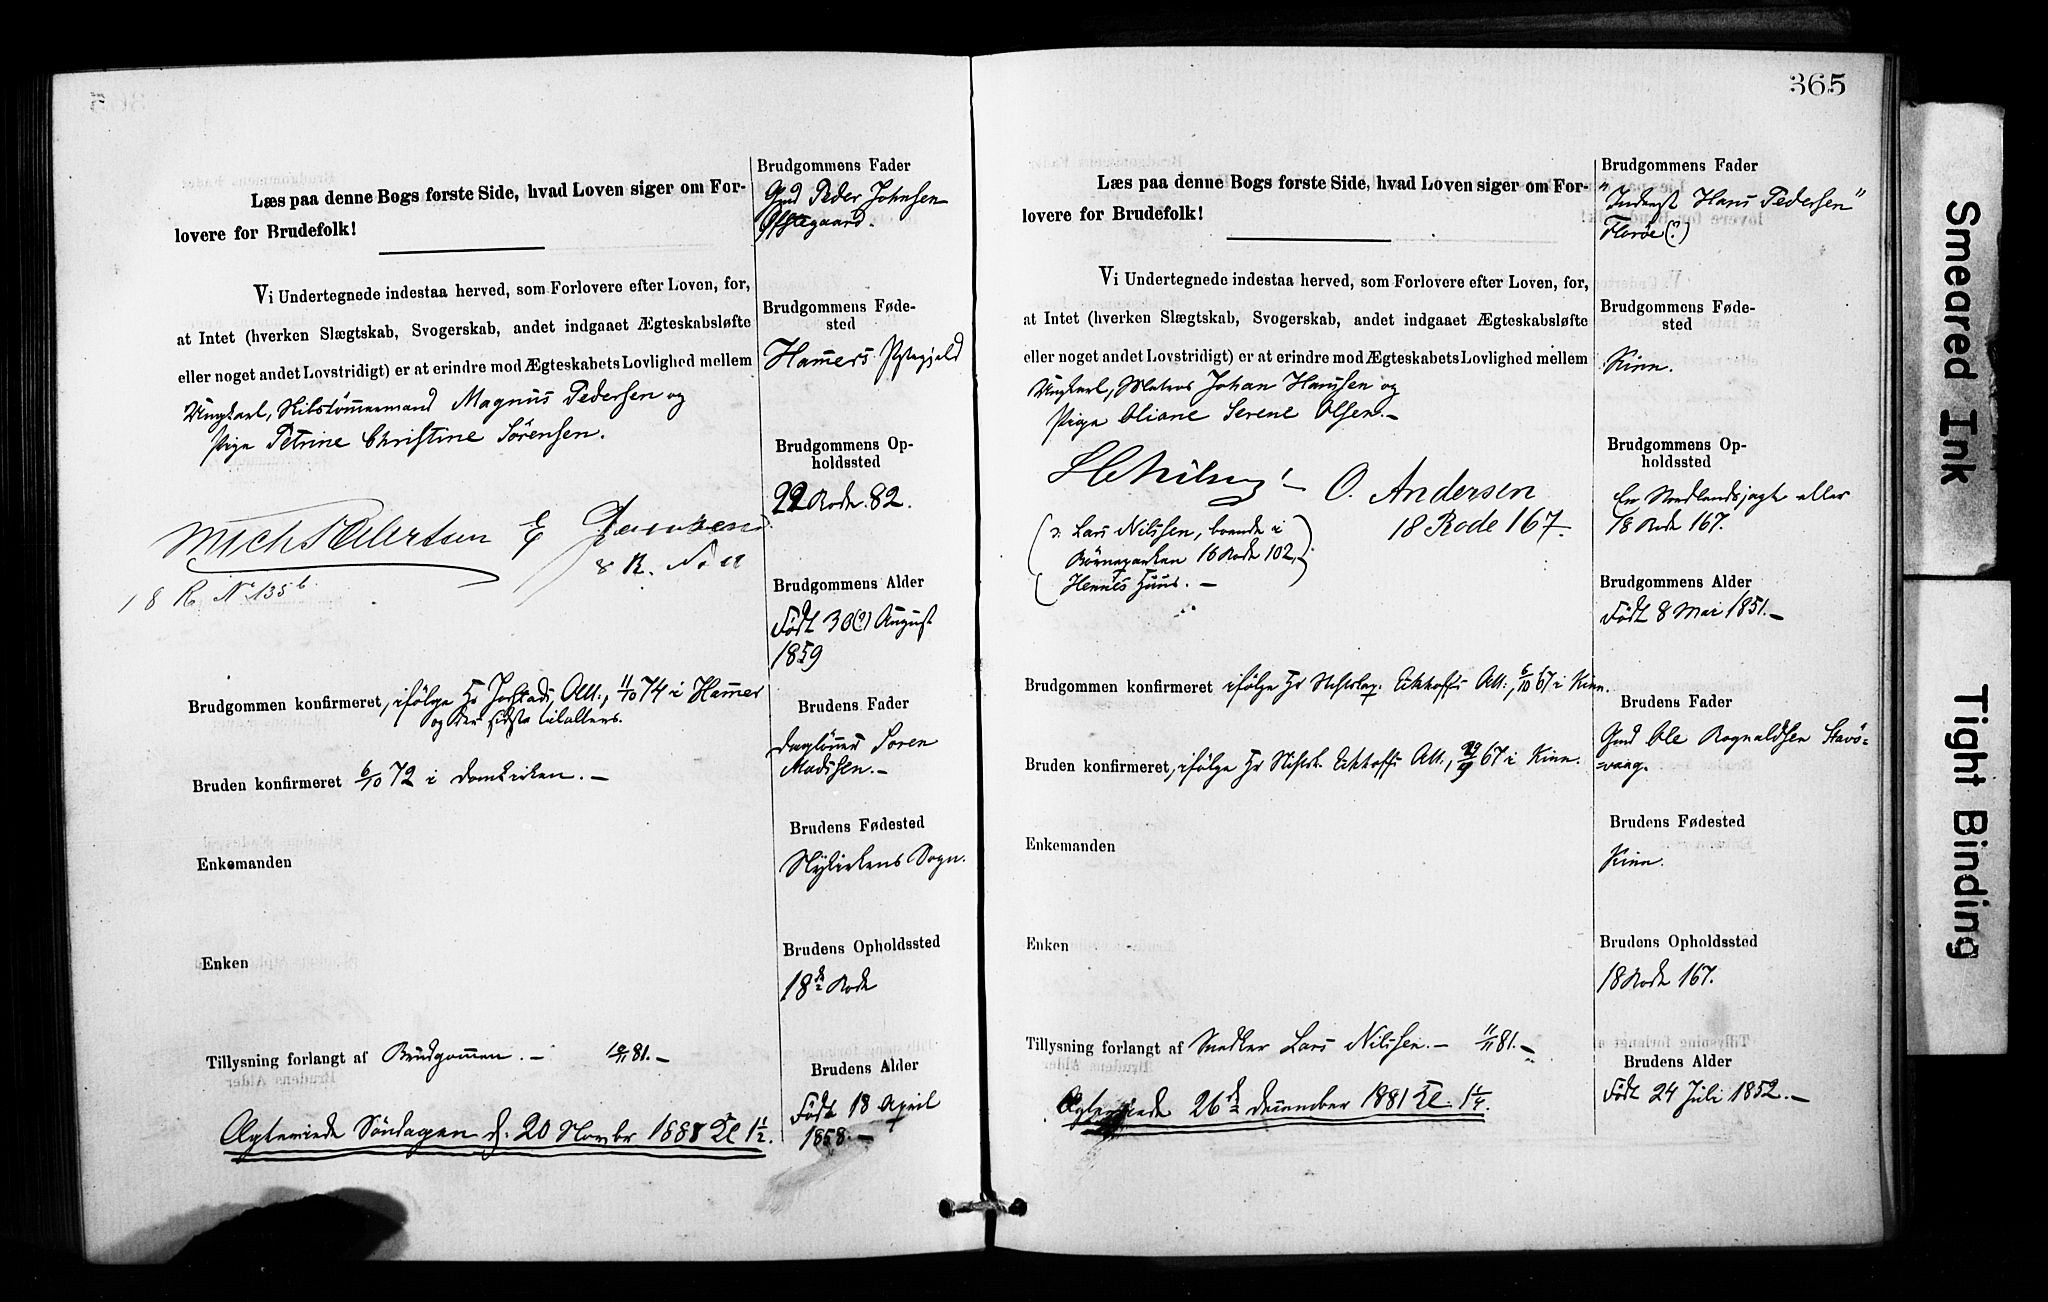 Læs paa denne Bogs første Side, hvad Loven siger om For-
lovere for Brudefolk!
Vi Undertegnede indestaa herved, som Forlovere efter Loven, for,
at Intet (hverken Slægtskab, Svogerskab, andet indgaaet Ægteskabsløfte
eller noget andet Lovstridigt) er at erindre mod Ægteskabets Lovlighed mellem
Ungkarl, Skibstömmermand Magnus Pedersen og
Pige Petrine Christine Sörensen.
18 R No 135 b.
8 R. No 11
Brudgommen konfirmeret, ifölge Hr Att., 11/10 74 i Hammer
og der sidste
Bruden konfirmeret 6/10 72 i Domkirken. —
Enkemanden
Enken
Tillysning forlangt af Brudgommen. — 81. —
Ægteviede Söndagen d. 20 Novbr 1881 Kl 1 1/2.
Brudgommens Fader
Gmd Peder Johnsen
Brudgommens Føde-
sted
Hammers Prstegjeld
Brudgommens Op-
holdssted
22 Rode 82.
Brudgommens Alder
Födt 30(?) August
1859
Brudens Fader
Daglönner Sören
Madssen. —
Brudens Fødested
Nykirkens Sogn.
Brudens Opholdssted
18de Rode
Brudens Alder
Födt 18 April
1858. —
365
Læs paa denne Bogs første Side, hvad Loven siger om For-
lovere for Brudefolk!
Vi Undertegnede indestaa herved, som Forlovere efter Loven, for,
at Intet (hverken Slægtskab, Svogerskab, andet indgaaet Ægteskabsløfte
eller noget andet Lovstridigt) er at erindre mod Ægteskabets Lovlighed mellem
Ungkarl, Matros Johan Hanssen og
Pige Oliane Serene Olsen. —
O. Andersen
18 Rode 167.
(ɔ: Lars Nilssen, boende i
16 Rode 102,
Huus. —)
Brudgommen konfirmeret ifölge Hr Eckhoffs Att., 6/10 67 i Kinn.
Bruden konfirmeret, ifölge Hr Eckhoffs Att., 67 i Kinn.
Enkemanden
Enken
Tillysning forlangt af Lars Nilssen. — 11/11 81. —
Ægteviede 26de December 1881 Kl. 1 1/4.
Brudgommens Fader
"Inderst Hans Pedersen"
Floröe (?)
Brudgommens Føde-
sted
Kinn.
Brudgommens Op-
holdssted
En Nordlandsjagt eller
18 Rode 167.
Brudgommens Alder
Födt 8 Mai 1851. —
Brudens Fader
Gmd Ole Rognaldsen Stavö-
=vaag.
Brudens Fødested
Kinn.
Brudens Opholdssted
18 Rode 167.
Brudens Alder
Födt 24 Juli 1852. —
Smeared Ink
Tight Binding